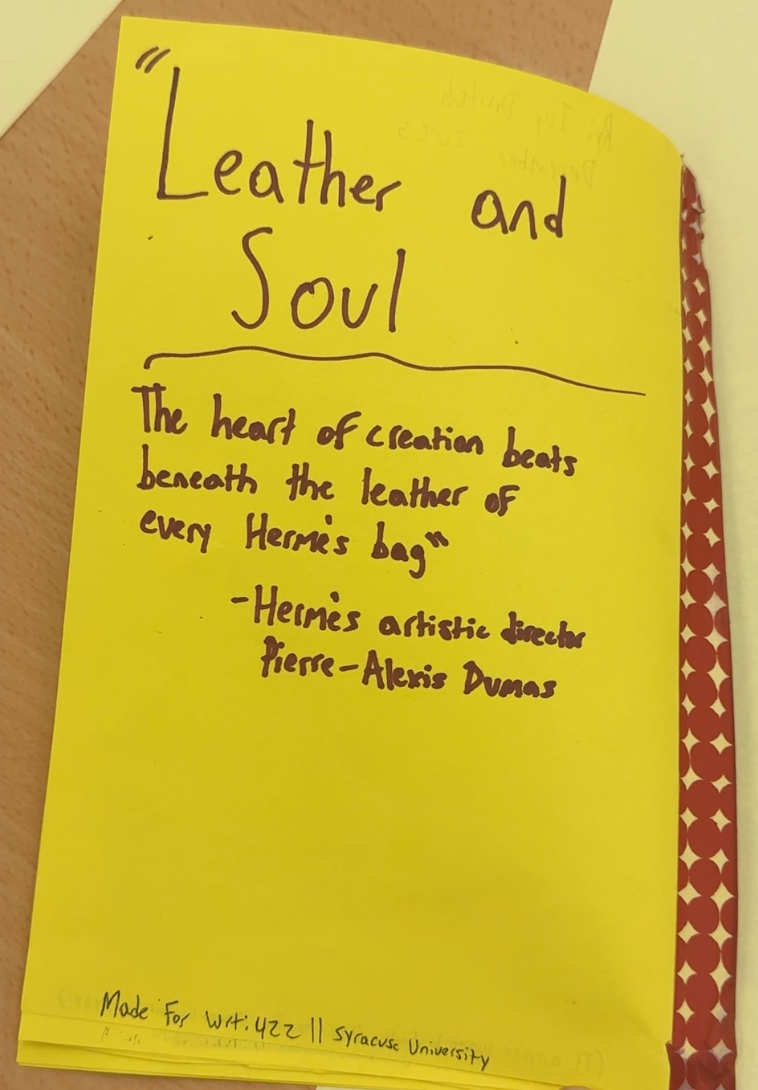 "Leather and
Soul
The heart of creation beats
beneath the leather of
every Hermès bag"
-Hermès artistic director
Pierre-Alexis Dumas
Made For Wrt:422 || Syracuse University